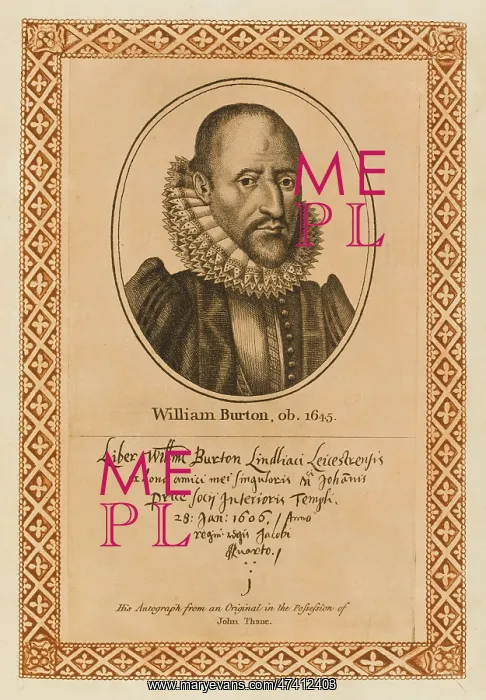 ME
PL
William Burton, ob. 1645.
Liber Willmi Burton Lindliaci Leicestrensis
ex dono amici mei singularis Mri Johanis
Price socij Interioris Templi.
28: Jan: 1606. / Anno
regni regis Jacobi
Quarto. /
ME
PL
His Autograph from an Original in the Possession of
John Thane.
www.maryevans.com/47412403